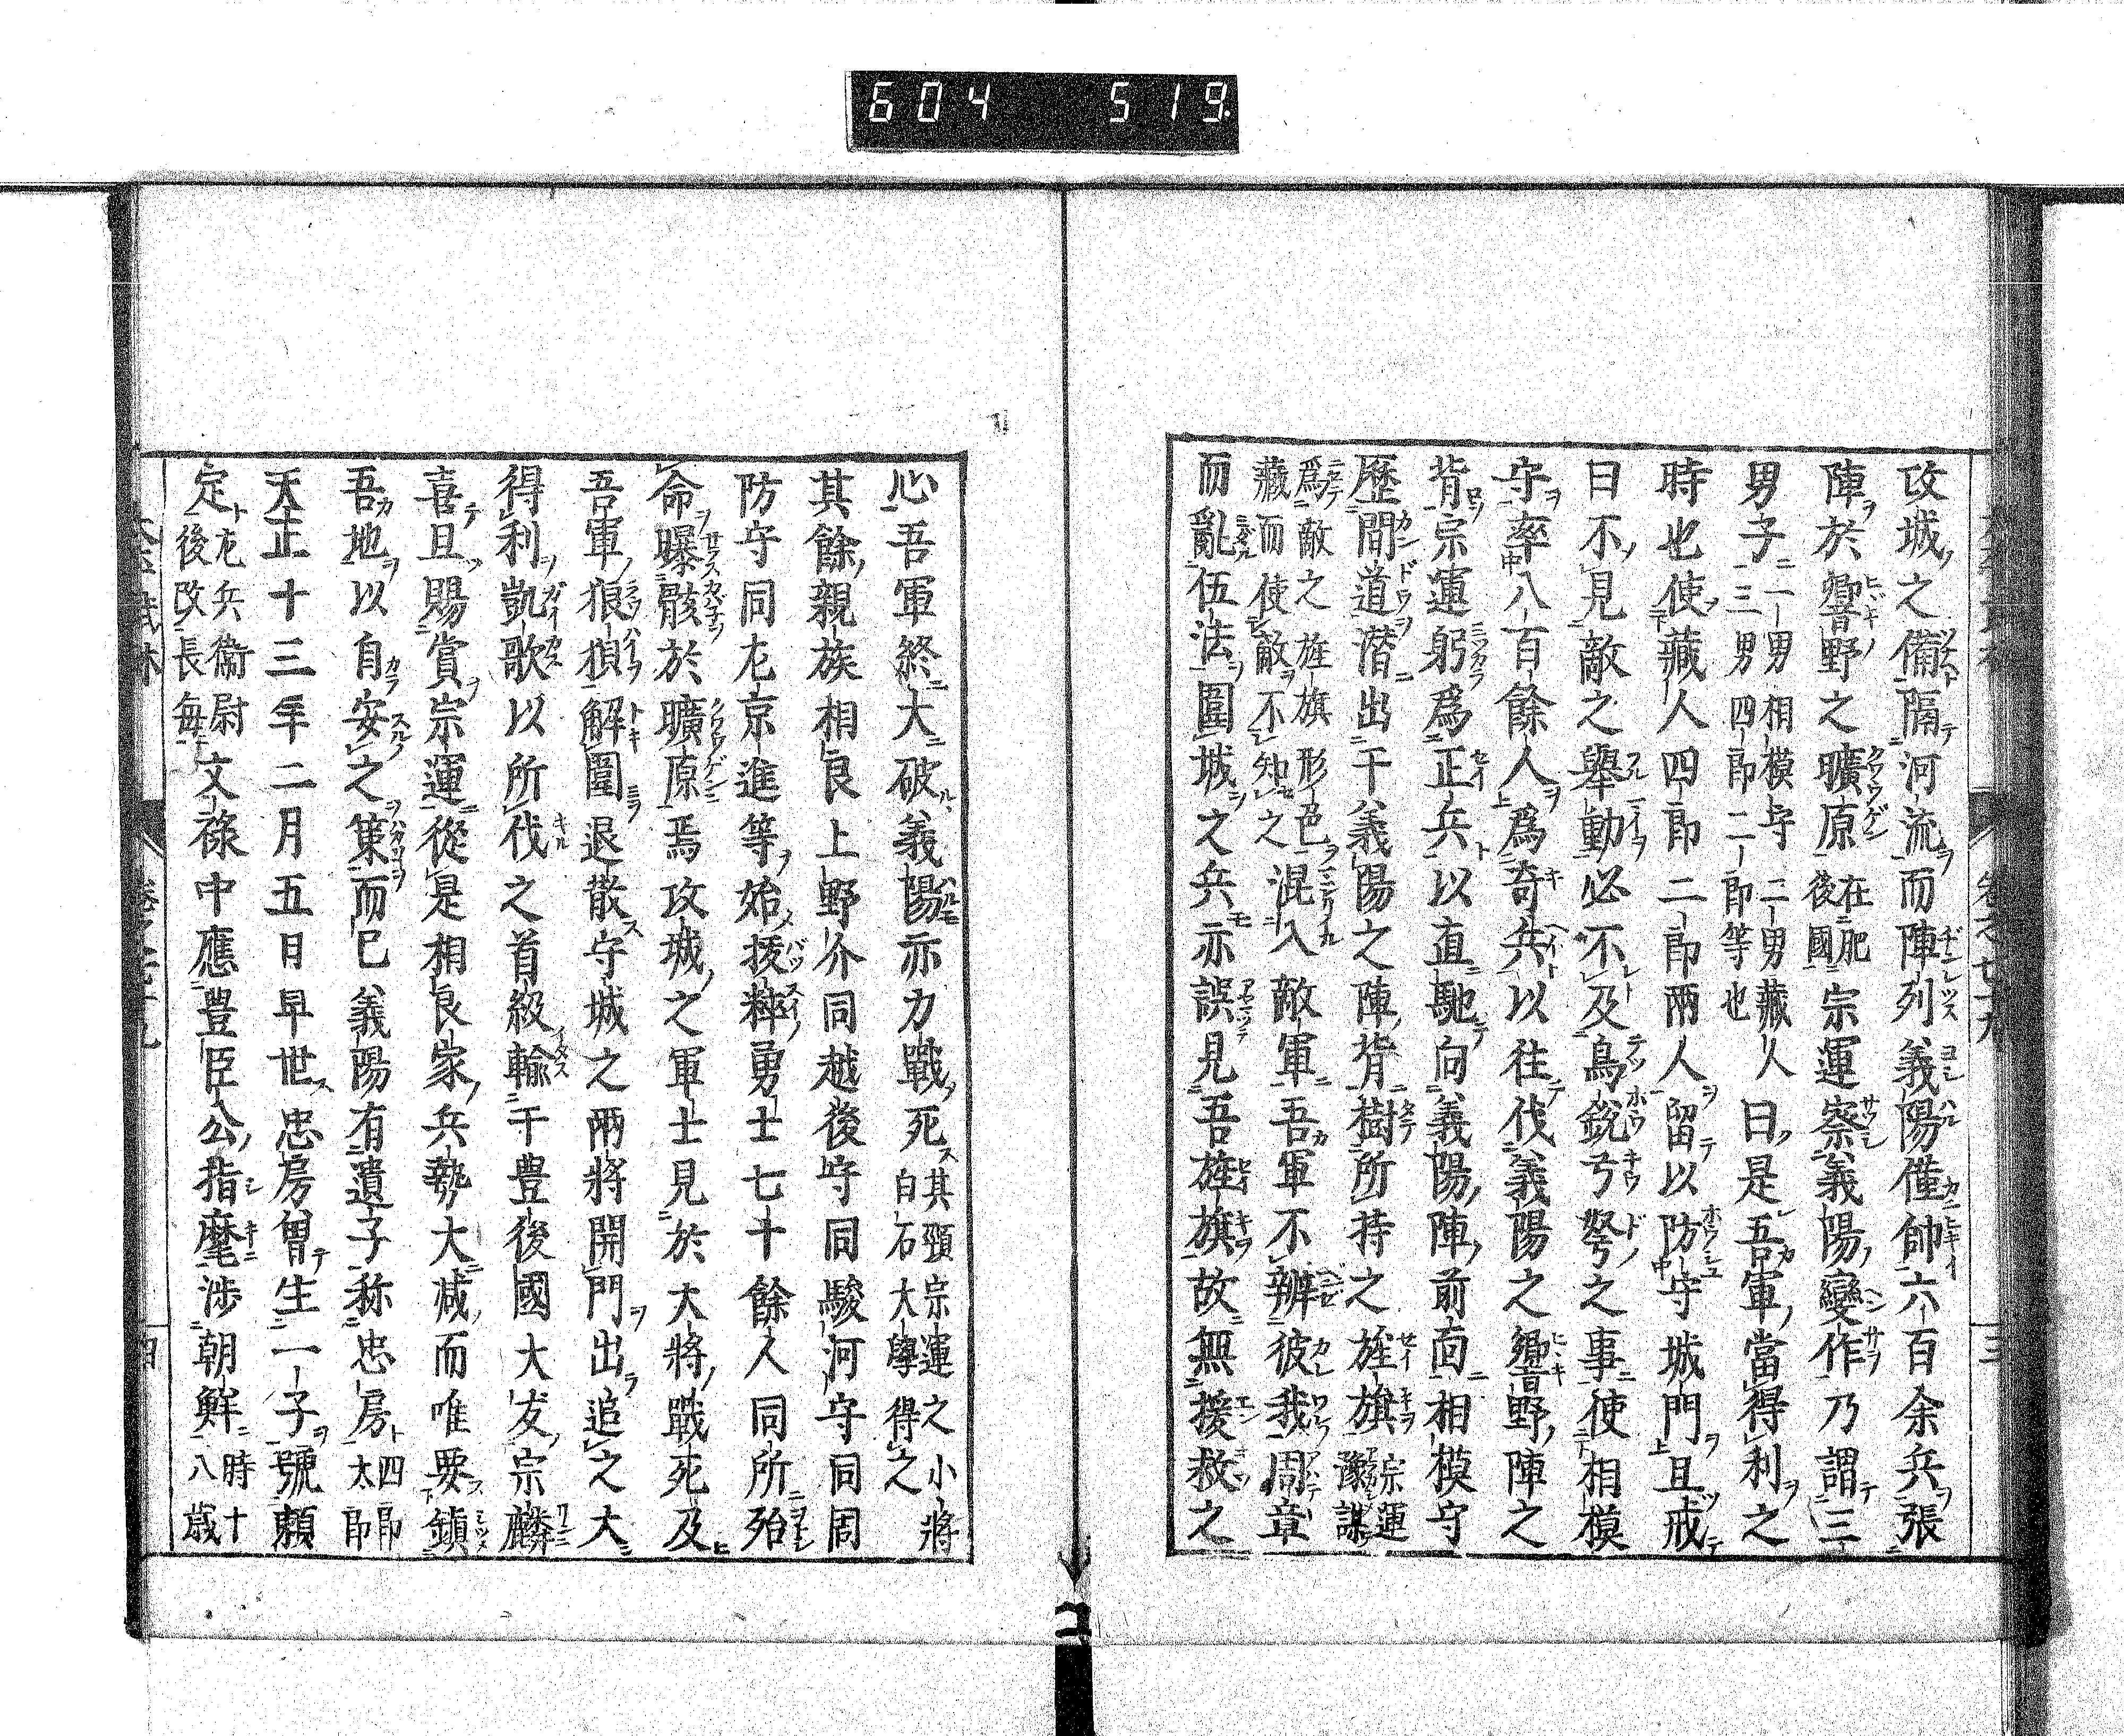 604 519
攻城之備隔河流而陣列義陽僅帥六百余兵張
陣於響野之曠原在肥後國宗運察義陽變作乃謂三
男子一男相模守二男藏人三男四郎二郎等也曰是吾軍當得利之
時也使藏人四郎二郎兩人留以防守城門且戒
曰不見敵之舉動必不及鳥銃弓弩之事使相模
守率八百餘人爲奇兵以往伐義陽之響野陣之
背宗運躬爲正兵以直馳向義陽陣前面相模守
歷間道潜出于義陽之陣背樹所持之旌旗宗運豫謀
爲敵之旌旗形色藏而使敵不知之混入敵軍吾軍不辨彼我周章
而亂伍法圍城之兵亦誤見吾旌旗故無援救之
心吾軍終大破義陽亦力戰死其頸宗運之小將白石大學得之
其餘親族相良上野介同越後守同駿河守同周
防守同左京進等始援粹勇士七十餘人同所殆
命曝骸於曠原焉攻城之軍士見於大將戰死及
吾軍狼狽解圍退散守城之兩將開門出追之大
得利凱歌以所伐之首級輸于豊後國大友宗麟
喜且賜賞宗運從是相良家兵勢大减而唯要鎮
吾地以自安之策而已義陽有遺子称忠房四郎太郎
天正十三年二月五日早世忠房曽生一子號頼
定左兵衞尉後改長毎文祿中應豊臣公指麾渉朝鮮時十八歳